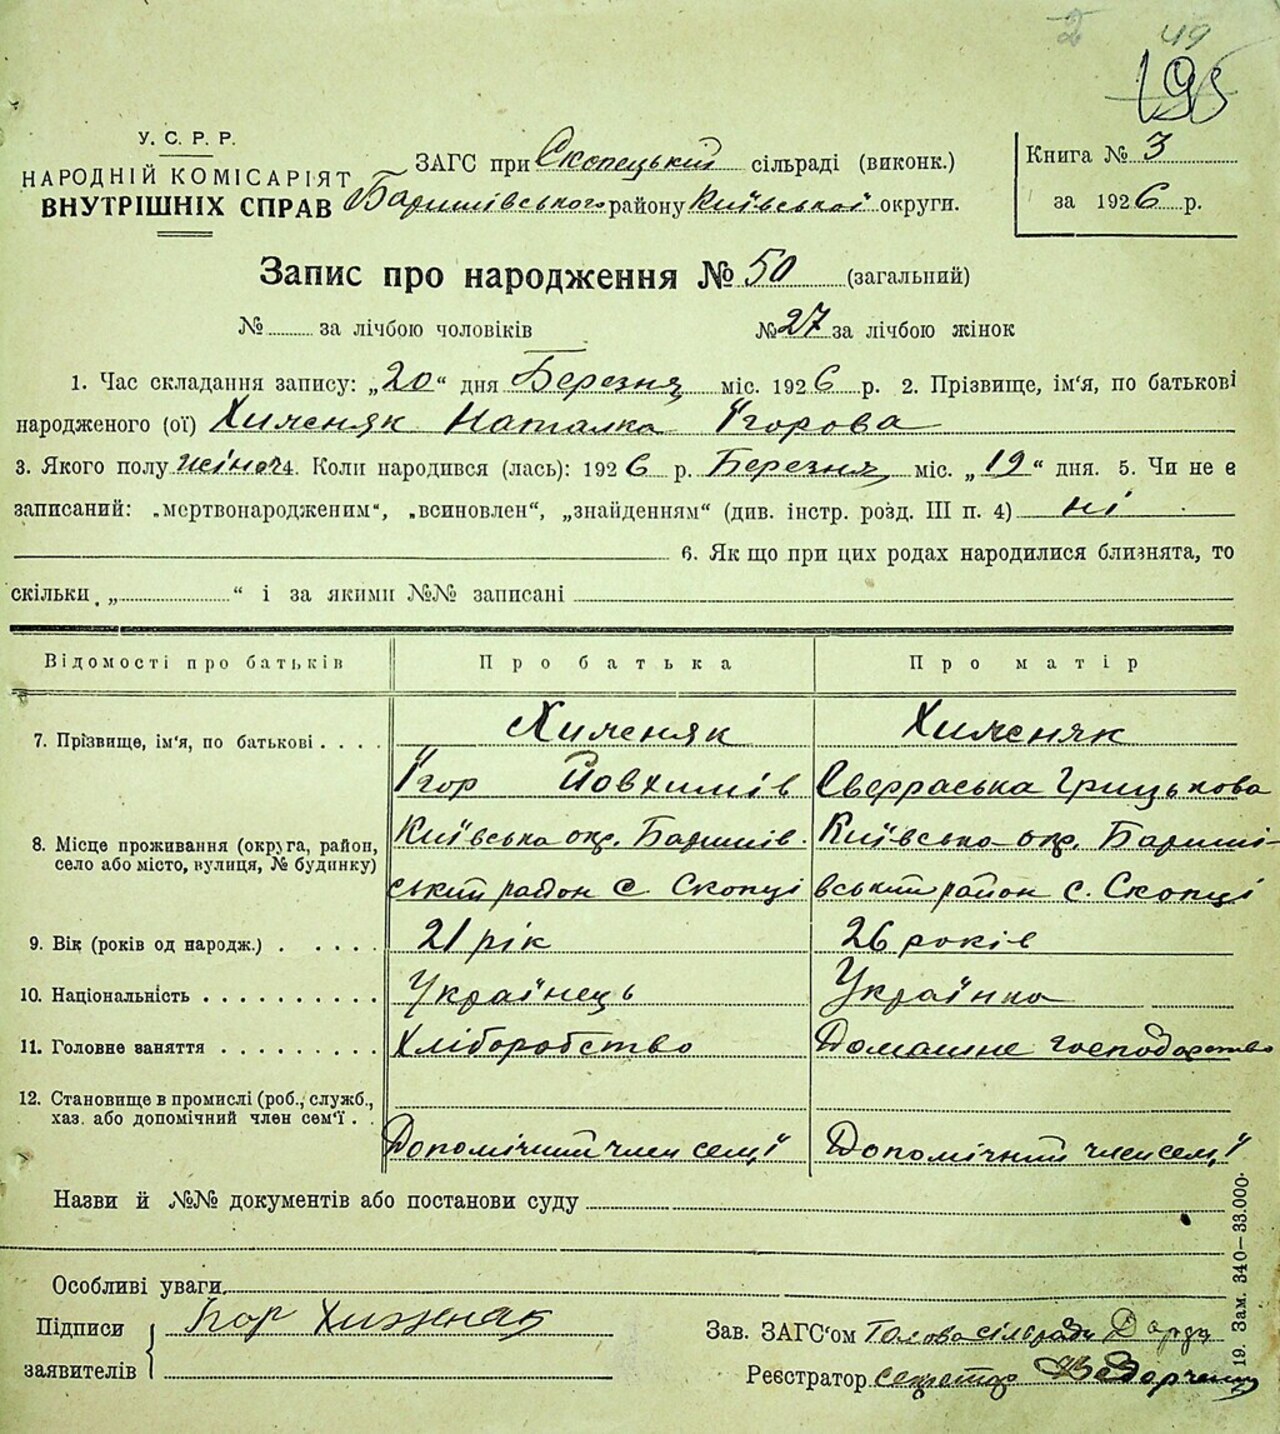 2
49
195
У. С. Р. Р.
НАРОДНІЙ КОМІСАРІЯТ
ВНУТРІШНІХ СПРАВ
ЗАГС при Скопецький сільраді (виконк.)
Баришівського району Київської округи.
Книга № 3
за 1926 р.
Запис про народження № 50 (загальний)
№ за лічбою чоловіків № 27 за лічбою жінок
1. Час складання запису: „20“ дня Березня міс. 1926 р. 2. Прізвище, ім'я, по батькові
народженого (ої) Хиженяк Наталка Ігорова
3. Якого полу жіноч 4. Коли народився (лась): 1926 р. Березня міс. „19“ дня. 5. Чи не є
записаний: „мертвонародженим“, „всиновлен“, „знайденням“ (див. інстр. розд. III п. 4) ні
6. Як що при цих родах народилися близнята, то
скільки „ “ і за якими №№ записані
Відомості про батьків Про батька Про матір
7. Прізвище, ім'я, по батькові Хиженяк Хиженяк
Ігор Йовхимів Грицькова
8. Місце проживання (округа, район, село або місто, вулиця, № будинку) Київська окр. Баришів- Київська окр. Бариші-
ський район с. Скопці вський район с. Скопці
9. Вік (років од народж.) 21 рік 26 років
10. Національність Українець Українка
11. Головне заняття Хліборобство Домашне господарство
12. Становище в промислі (роб., служб., хаз. або допомічний член сем'ї
Допомічний член семї Допомічний член семї
Назви й №№ документів або постанови суду
Особливі уваги
Підписи
заявителів
Ігор Хиженяк
Зав. ЗАГС'ом Голова сільради
Реєстратор секретар Федорченко
19. Зам. 340—33.000.